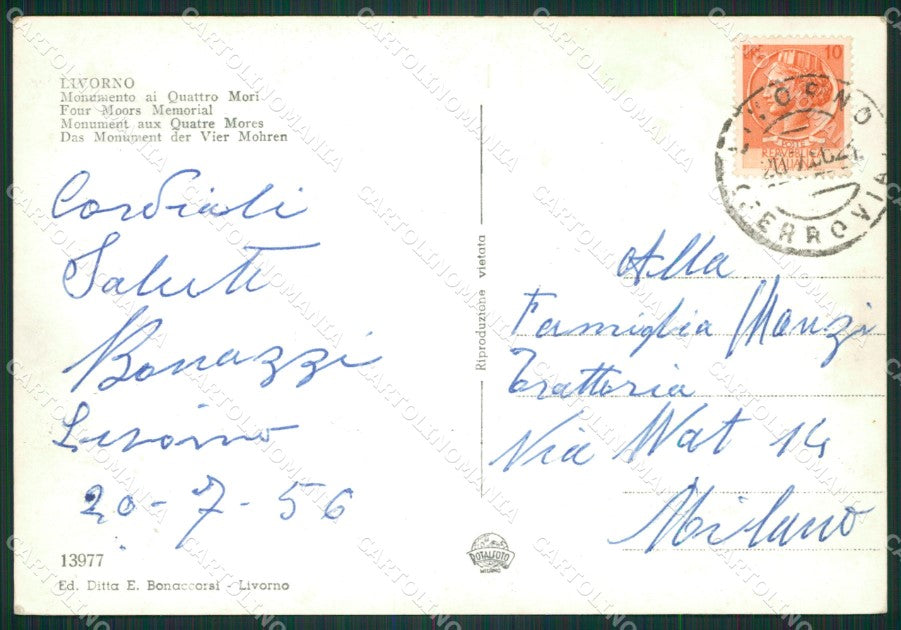 LIVORNO
Monumento ai Quattro Mori
Four Moors Memorial
Monument aux Quatre Mores
Das Monument der Vier Mohren
Cordiali
Saluti
Bonazzi
Livorno
20-7-56
13977
Ed. Ditta E. Bonaccorsi - Livorno
Riproduzione vietata
ROTALFOTO
MILANO
LIRE 10
POSTE
REPVBBLICA
ITALIANA
LIVORNO
FERROVIA
Alla
Famiglia Manzi
Trattoria
Via Wat 14
Milano
CARTOLINOMANIA